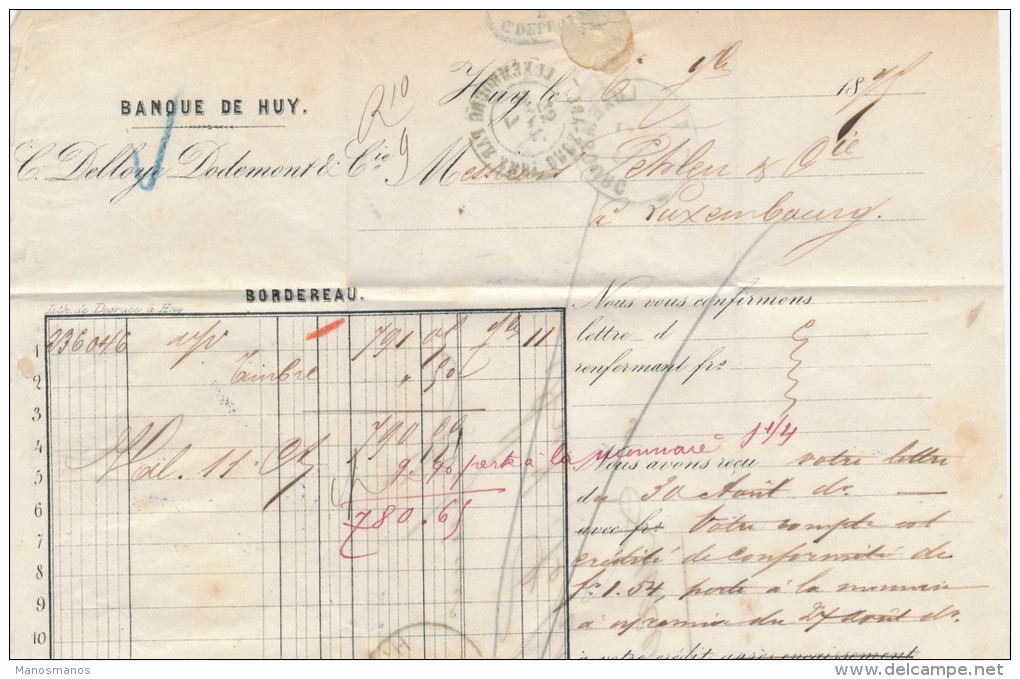 C. DEPRO
Huy, le 6 9bre 1875
BANQUE DE HUY.
R 10
9
LUXEMBOURG PAR
LUXEMBOURG
C. Delloye Dodemont & Cie
Messieurs & Cie
à Luxembourg.
BORDEREAU.
Lith. de Degrace à Huy
Nous vous confirmons
1 236046 791 05 9b 11
lettre d
2 Timbre " 50
renfermant frs
3
4 790 55
Val. 11
5 9. 90 perte à la monnaie 1 1/4
Nous avons reçu votre lettre
6 780.65
du 30 Août dr
avec frs Votre compte est
7
crédité de conformité de
8
fr 1.54, perte à la monnaie
9
du 27 août dr.
10
à votre crédit après encaissement
HUY
Manosmanos
www.delcampe.net